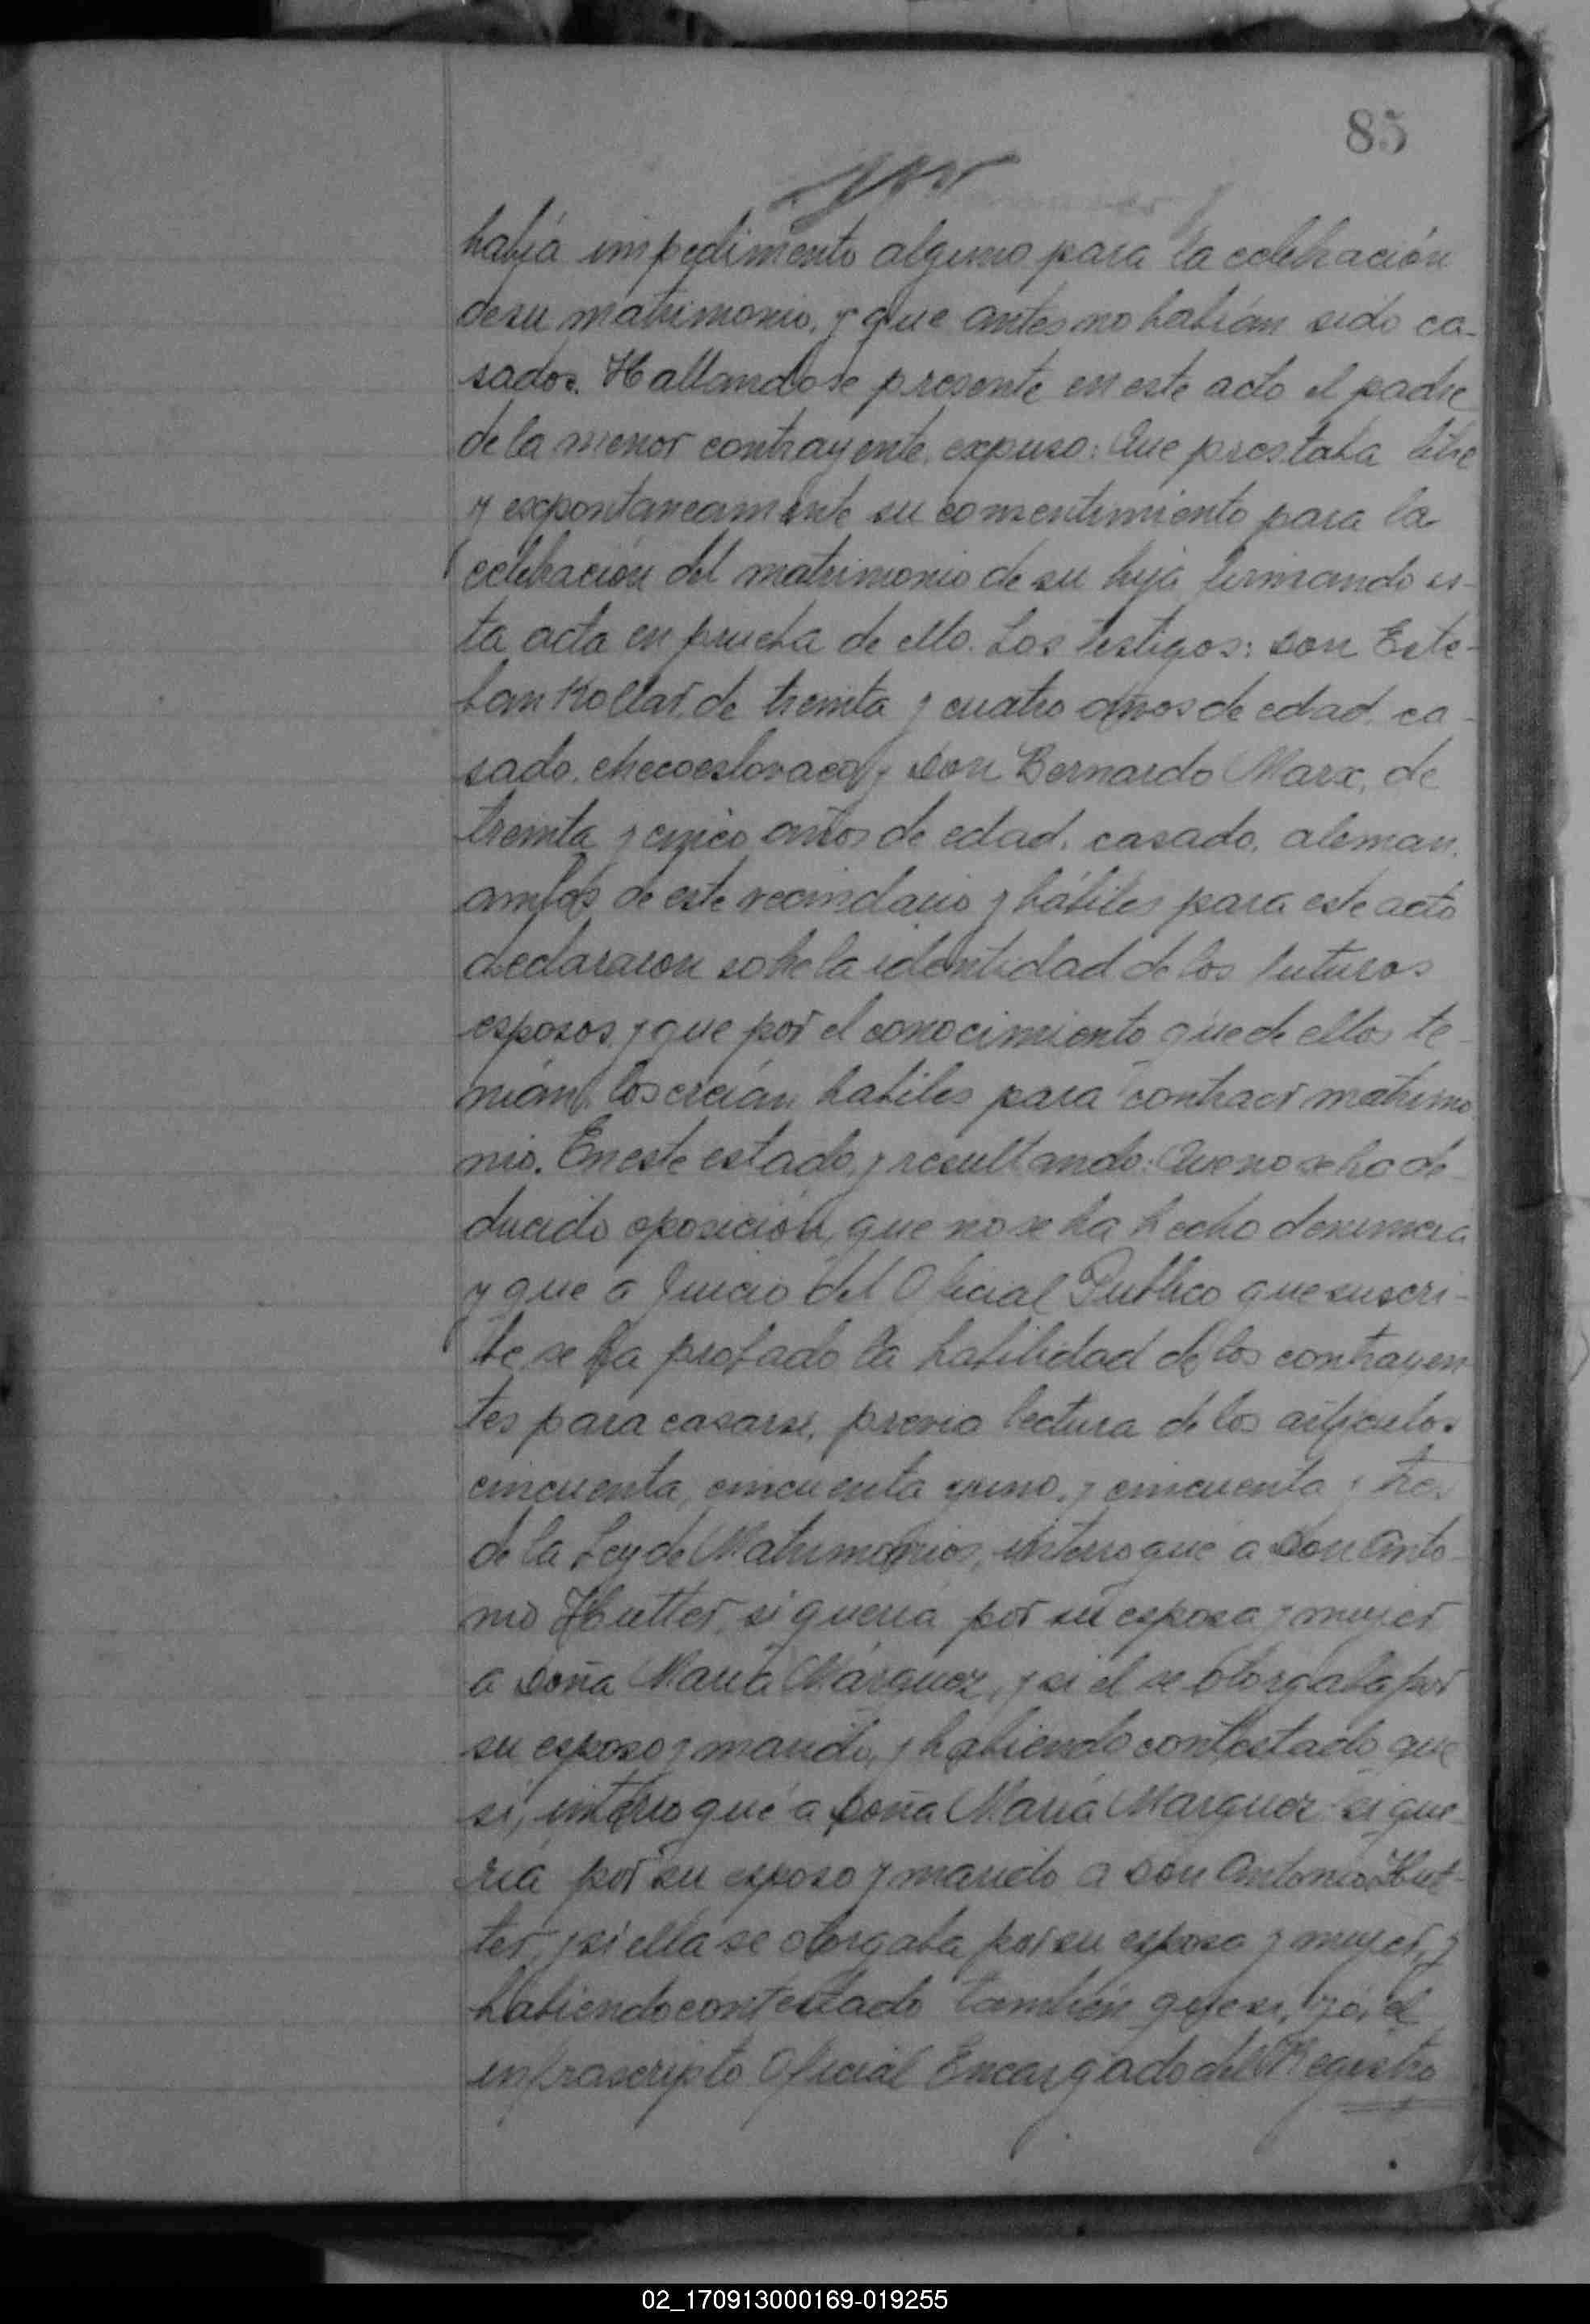 85
había impedimento alguno para la celebración
de su matrimonio, y que antes no habían sido ca-
sados. Hallandose presente en este acto el padre
de la menor contrayente, expuso: Que prestaba libre
y expontaneamente su consentimiento para la
celebración del matrimonio de su hija firmando es-
ta acta en prueba de ello. Los testigos: don Este-
ban Kollar, de treinta y cuatro años de edad, ca-
sado, checoeslovaco y don Bernardo Marx, de
treinta y cinco años de edad, casado, aleman,
ambos de este vecindario y hábiles para este acto
declararon sobre la identidad de los futuros
esposos, y que por el conocimiento que de ellos te-
nían, los creían habiles para contraer matrimo
nio. En este estado, y resultando: Que no se ha de-
ducido oposición, que no se ha hecho denuncia
y que a juicio del Oficial Publico que suscri-
be se ha probado la habilidad de los contrayen
tes para casarse, previa lectura de los artículos
cincuenta, cincuenta y uno, y cincuenta y tres
de la Ley de Matrimonios, interrogué a don Anto-
nio Hutter, si quería por su esposa y mujer
a doña María Márquez, y si el se otorgaba por
su esposo y marido, y habiendo contestado que
si, interrogué a doña María Marquez si que-
ría por su esposo y marido a don Antonio Hut-
ter, y si ella se otorgaba por su esposa y mujer, y
habiendo contestado también que si, yó, el
infrascripto Oficial Encargado del Registro
02_170913000169-019255